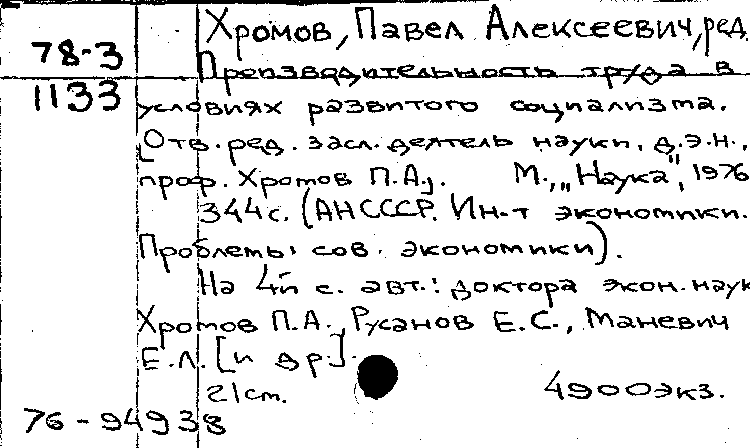 Хромов, Павел Алексеевич, ред.
78-3
Производительность труда в
1133
условиях развитого социализма.
[Отв. ред. засл. деятель науки, д.э.н.,
проф. Хромов П.А.]. М., „Наука", 1976
344с. (АН СССР. Ин-т экономики.
Проблемы сов. экономики).
На 4й с. авт.: доктора экон. наук
Хромов П.А., Русанов Е.С., Маневич
Е.Л. [и др.].
21 cm. 4900экз.
76-94938